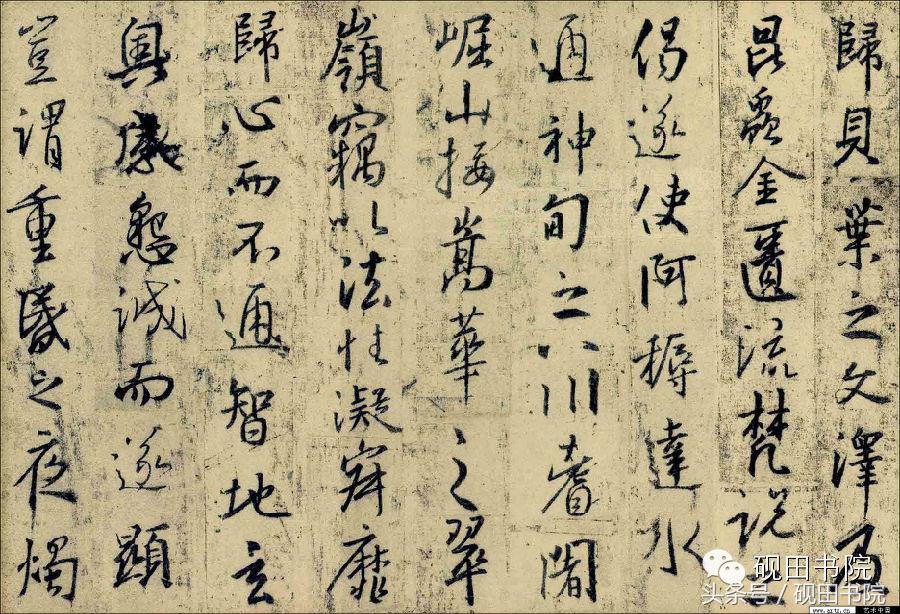 歸貝葉之文澤及
昆蟲金匱流梵說之
偈遂使阿耨達水
通神甸之八川耆闍
崛山接嵩華之翠
嶺竊以法性凝寂靡
歸心而不通智地玄
奧感懇誠而遂顯
豈謂重昏之夜燭
砚田书院
头条号 / 砚田书院
www.artx.cn 艺术中国